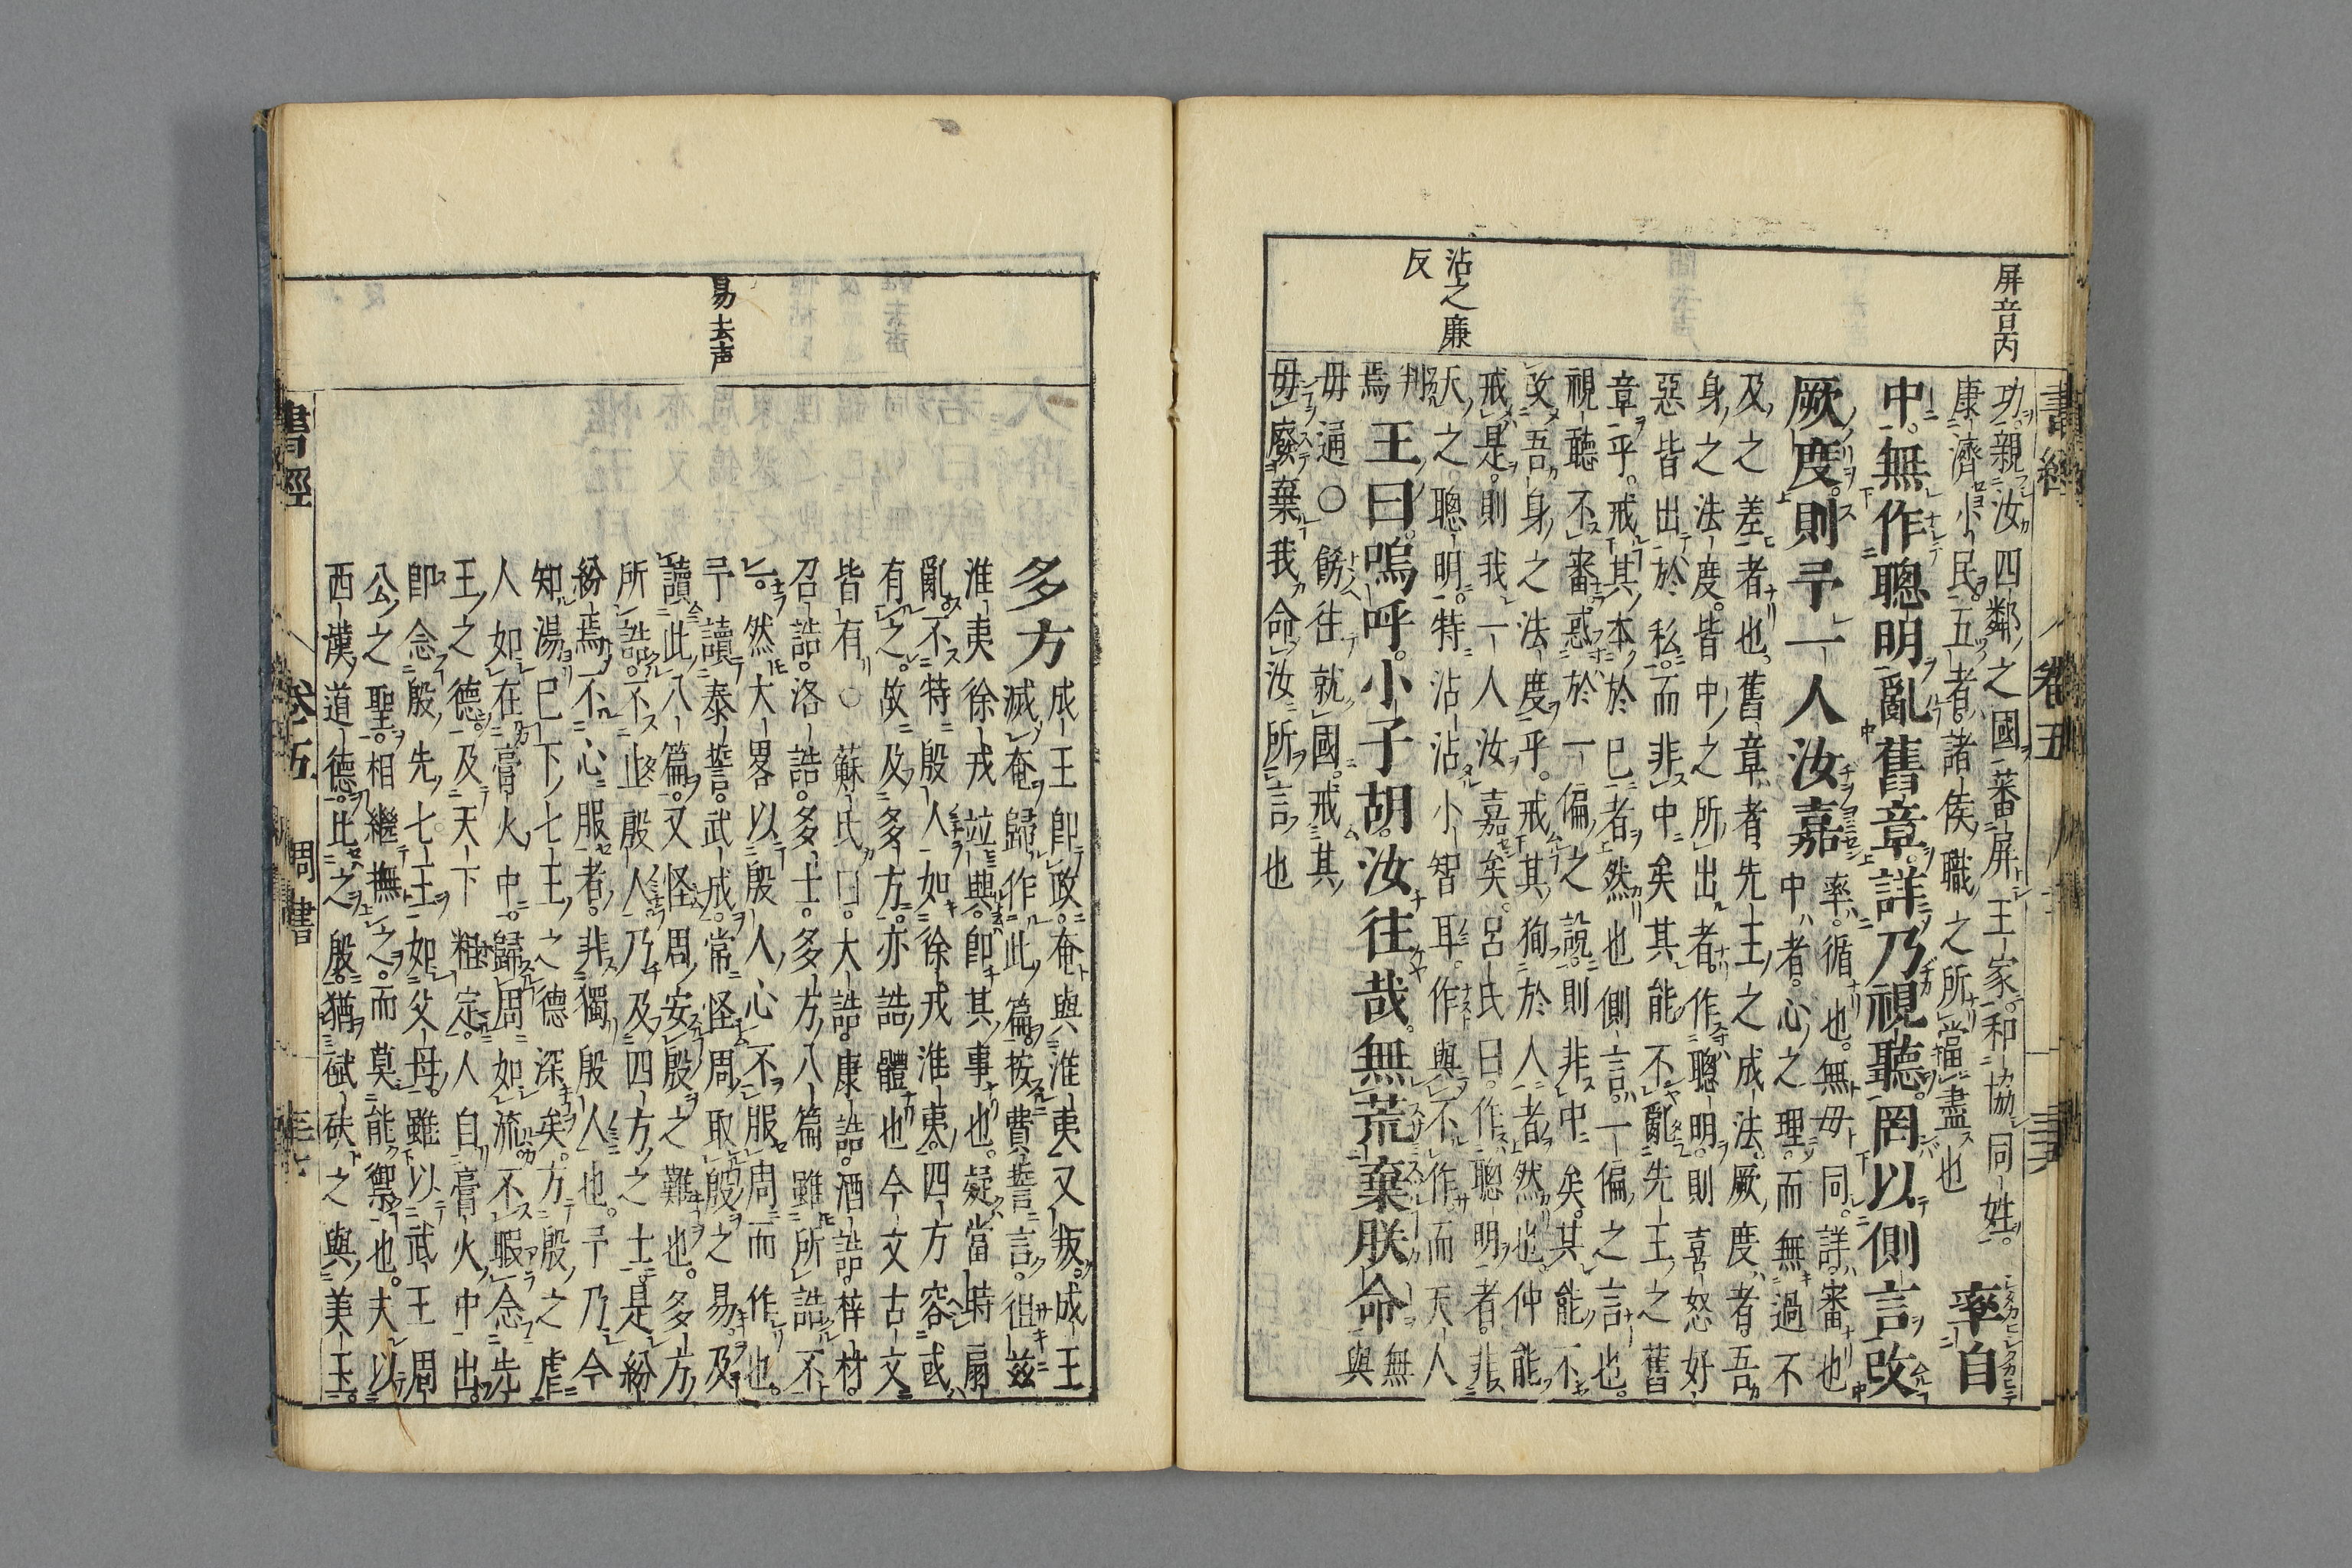 屏音丙
沾之廉
反
書經 卷五
功親汝四鄰之國蕃屏王家和協同姓
康濟小民五者諸侯職之所當盡也
率自
中無作聰明亂舊章詳乃視聽罔以側言改
厥度則予一人汝嘉
率循也無毋同詳審也
中者心之理而無過不
及之差者也舊章者先王之成法厥度者吾
身之法度皆中之所出者作聰明則喜怒好
惡皆出於私而非中矣其能不亂先王之舊
章乎戒其本於己者然也側言一偏之言也
視聽不審惑於一偏之說則非中矣其能不
改吾身之法度乎戒其徇於人者然也仲能
戒是則我一人汝嘉矣呂氏曰作聰明者非
天之聰明特沾沾小智耳作與不作而天人
判
焉
王曰嗚呼小子胡汝往哉無荒棄朕命
無
與
毋通○餝往就國戒其
毋廢棄我命汝所言也
易去声
多方
成王即政奄與淮夷又叛成王
滅奄歸作此篇按費誓言徂茲
淮夷徐戎並興即其事也疑當時扇
亂不特殷人如徐戎淮夷四方容或
有之故及多方亦誥體也今文古文
皆有○蘇氏曰大誥康誥酒誥梓材
召誥洛誥多士多方八篇雖所誥不
一然大畧以殷人心不服周而作也
予讀泰誓武成常怪周取殷之易及
讀此八篇又怪周安殷之難也多方
所誥不止殷人乃及四方之士是紛
紛焉不心服者非獨殷人也予乃今
知湯已下七王之德深矣方殷之虐
人如在膏火中歸周如流不暇念先
王之德及天下粗定人自膏火中出
即念殷先七王如父母雖以武王周
公之聖相繼撫之而莫能禦也夫以
西漢道德比之殷猶碔砆之與美玉
書經 卷五 周書